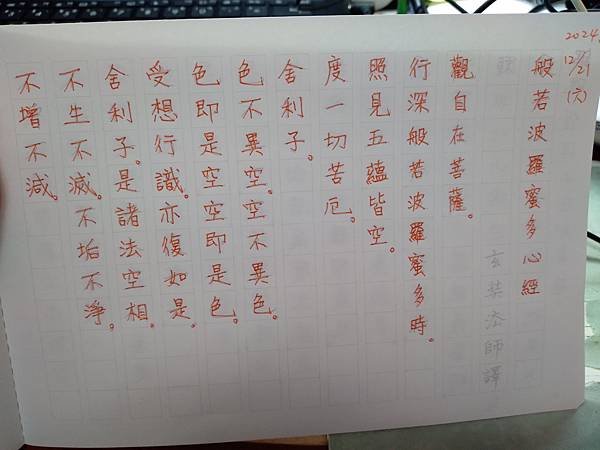 2024.
12/21
(六)
般若波羅蜜多心經
玄奘法師譯
觀自在菩薩。
行深般若波羅蜜多時。
照見五蘊皆空。
度一切苦厄。
舍利子。
色不異空。空不異色。
色即是空空即是色。
受想行識。亦復如是。
舍利子。是諸法空相。
不生不滅。不垢不淨。
不增不減。